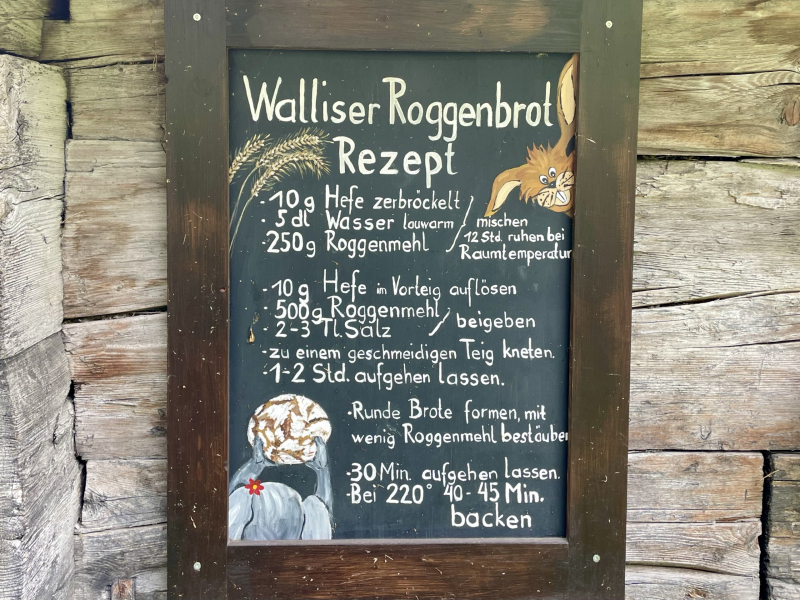 Walliser Roggenbrot
Rezept
· 10g Hefe zerbröckelt
· 5 dl Wasser lauwarm / mischen
· 250g Roggenmehl / 12 Std. ruhen bei
Raumtemperatur
· 10g Hefe im Vorteig auflösen
· 500g Roggenmehl
· 2-3 Tl. Salz / beigeben
· zu einem geschmeidigen Teig kneten.
· 1-2 Std. aufgehen lassen.
· Runde Brote formen, mit
wenig Roggenmehl bestäuben
· 30 Min. aufgehen lassen.
· Bei 220° 40-45 Min.
backen